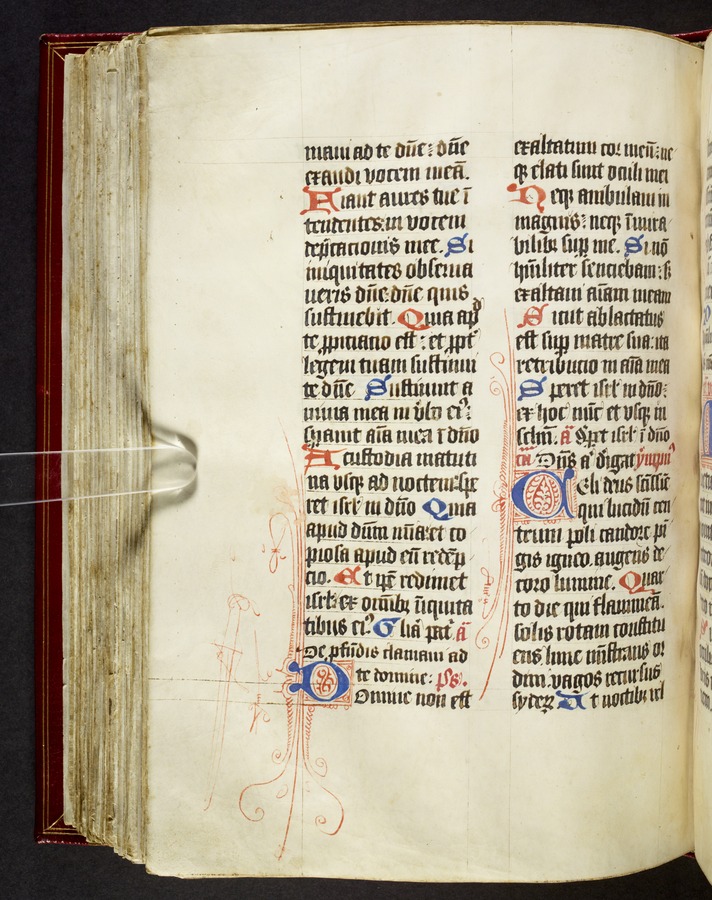 maui ad te dñe: dñe
exaudi vocem meã.
Fiant aures tue ĩ
tendentes: in vocem
dep̃cacionis mee. Si
iniquitates obserua
ueris dñe: dñe quis
sustinebit. Quia apd
te ꝓpiciacio est: et ꝓpt̃
legem tuam sustinui
te dñe Sustinuit a
nima mea in ũbo eiꝰ:
sꝑauit aĩa mea ĩ dño
A custodia matuti
na vsqꝫ ad noctem: spe
ret isrl̃ in dño Quia
apud dñm mĩa: et co
piosa apud eũ redẽp
cio. Et ip̃e redimet
isrl̃: ex om̃ibꝫ ĩiquita
tibus eiꝰ. Gl̃ia pat̃. a͂
De ꝓfũdis clamaui ad
te domine: ps̃.
Domine non est
exaltatum cor meũ: ne
qꝫ elati sunt oculi mei
Neqꝫ ambulaui in
magnis: neqꝫ ĩ mira
bilibꝫ sup̃ me. Si nõ
hũiliter senciebam: sꝫ
exaltaui aĩam meam
Sicut ablactatus
est sup̃ matre sua: ita
retribucio in aĩa mea
Speret isrl̃ in dño:
ex hoc nũc et vsqꝫ in
sclm̃. a͂ Sp̃et isrl̃ ĩ dño
Dñs a͂ dirigat ympnꝰ
Celi deus scissiẽ
qui lucidũ cen
trum poli candore pĩ
gis igneo. augens de
coro lumine. Quar
to die qui flammeã.
solis rotam constitu
ens lune mĩstrans or
dinem. vagos recursus
syderꝫ At noctibꝫ vel